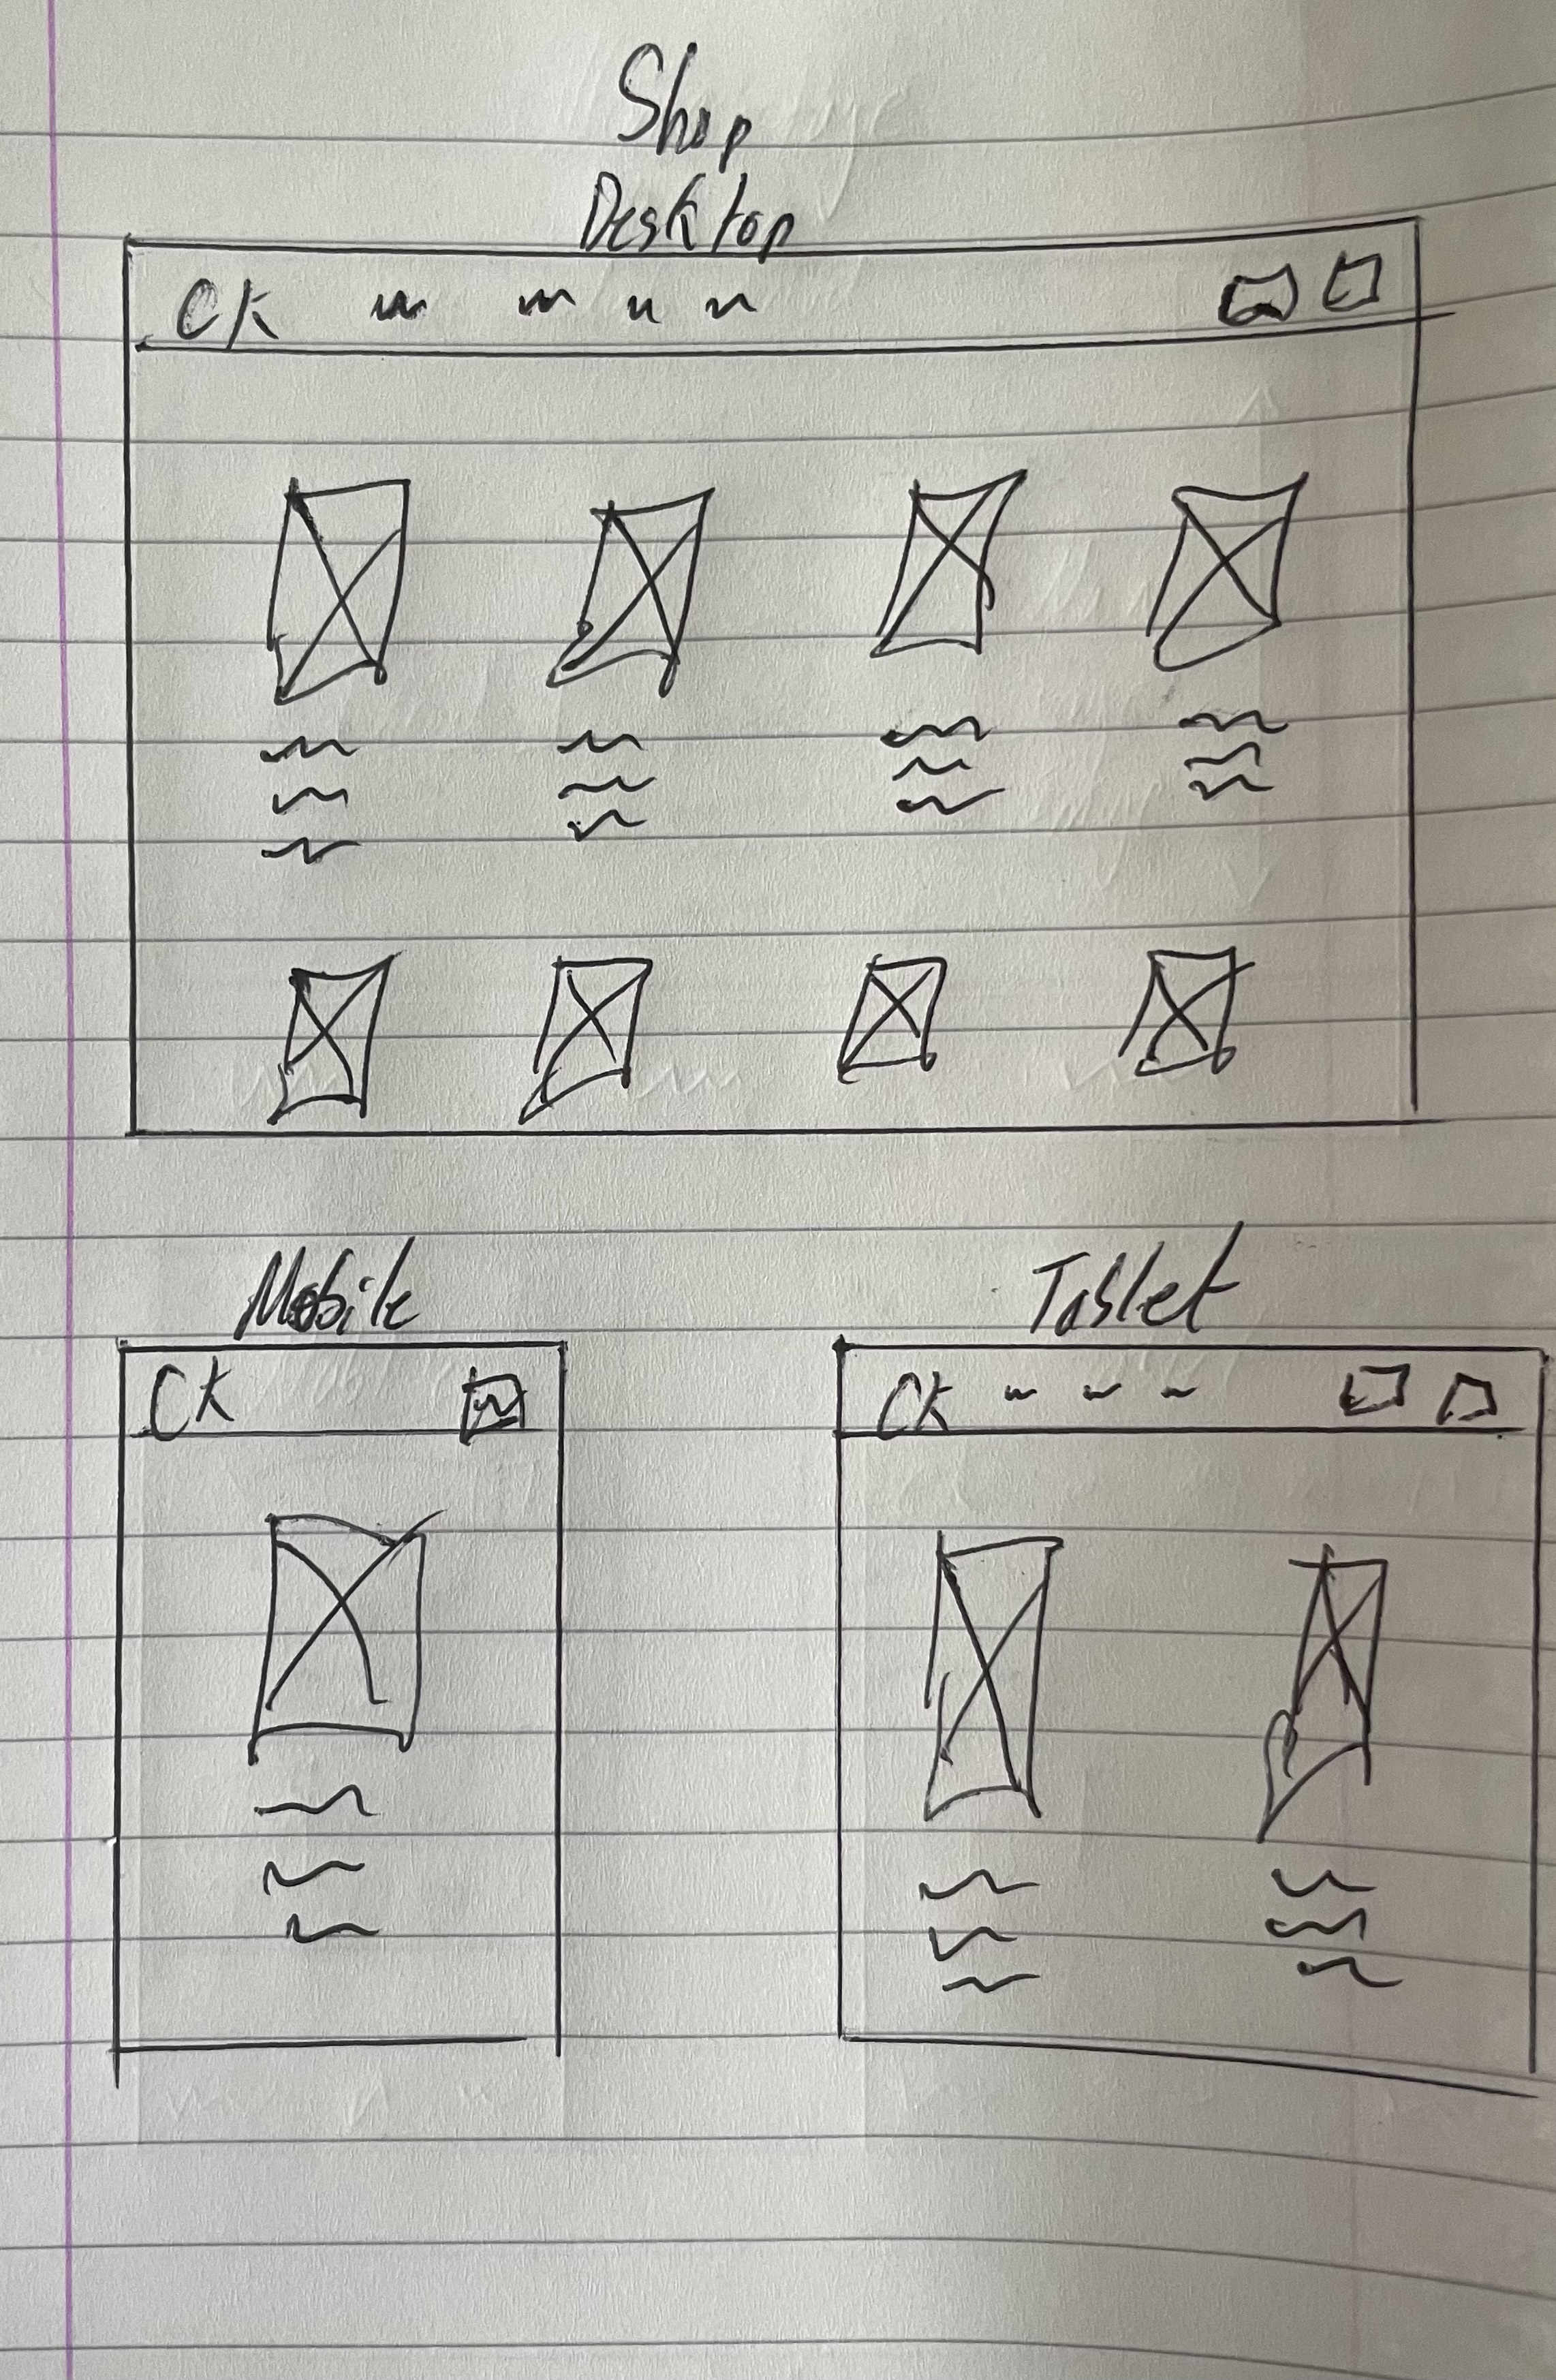 Shop
Desktop
CK
Mobile
Tablet
CK
CK